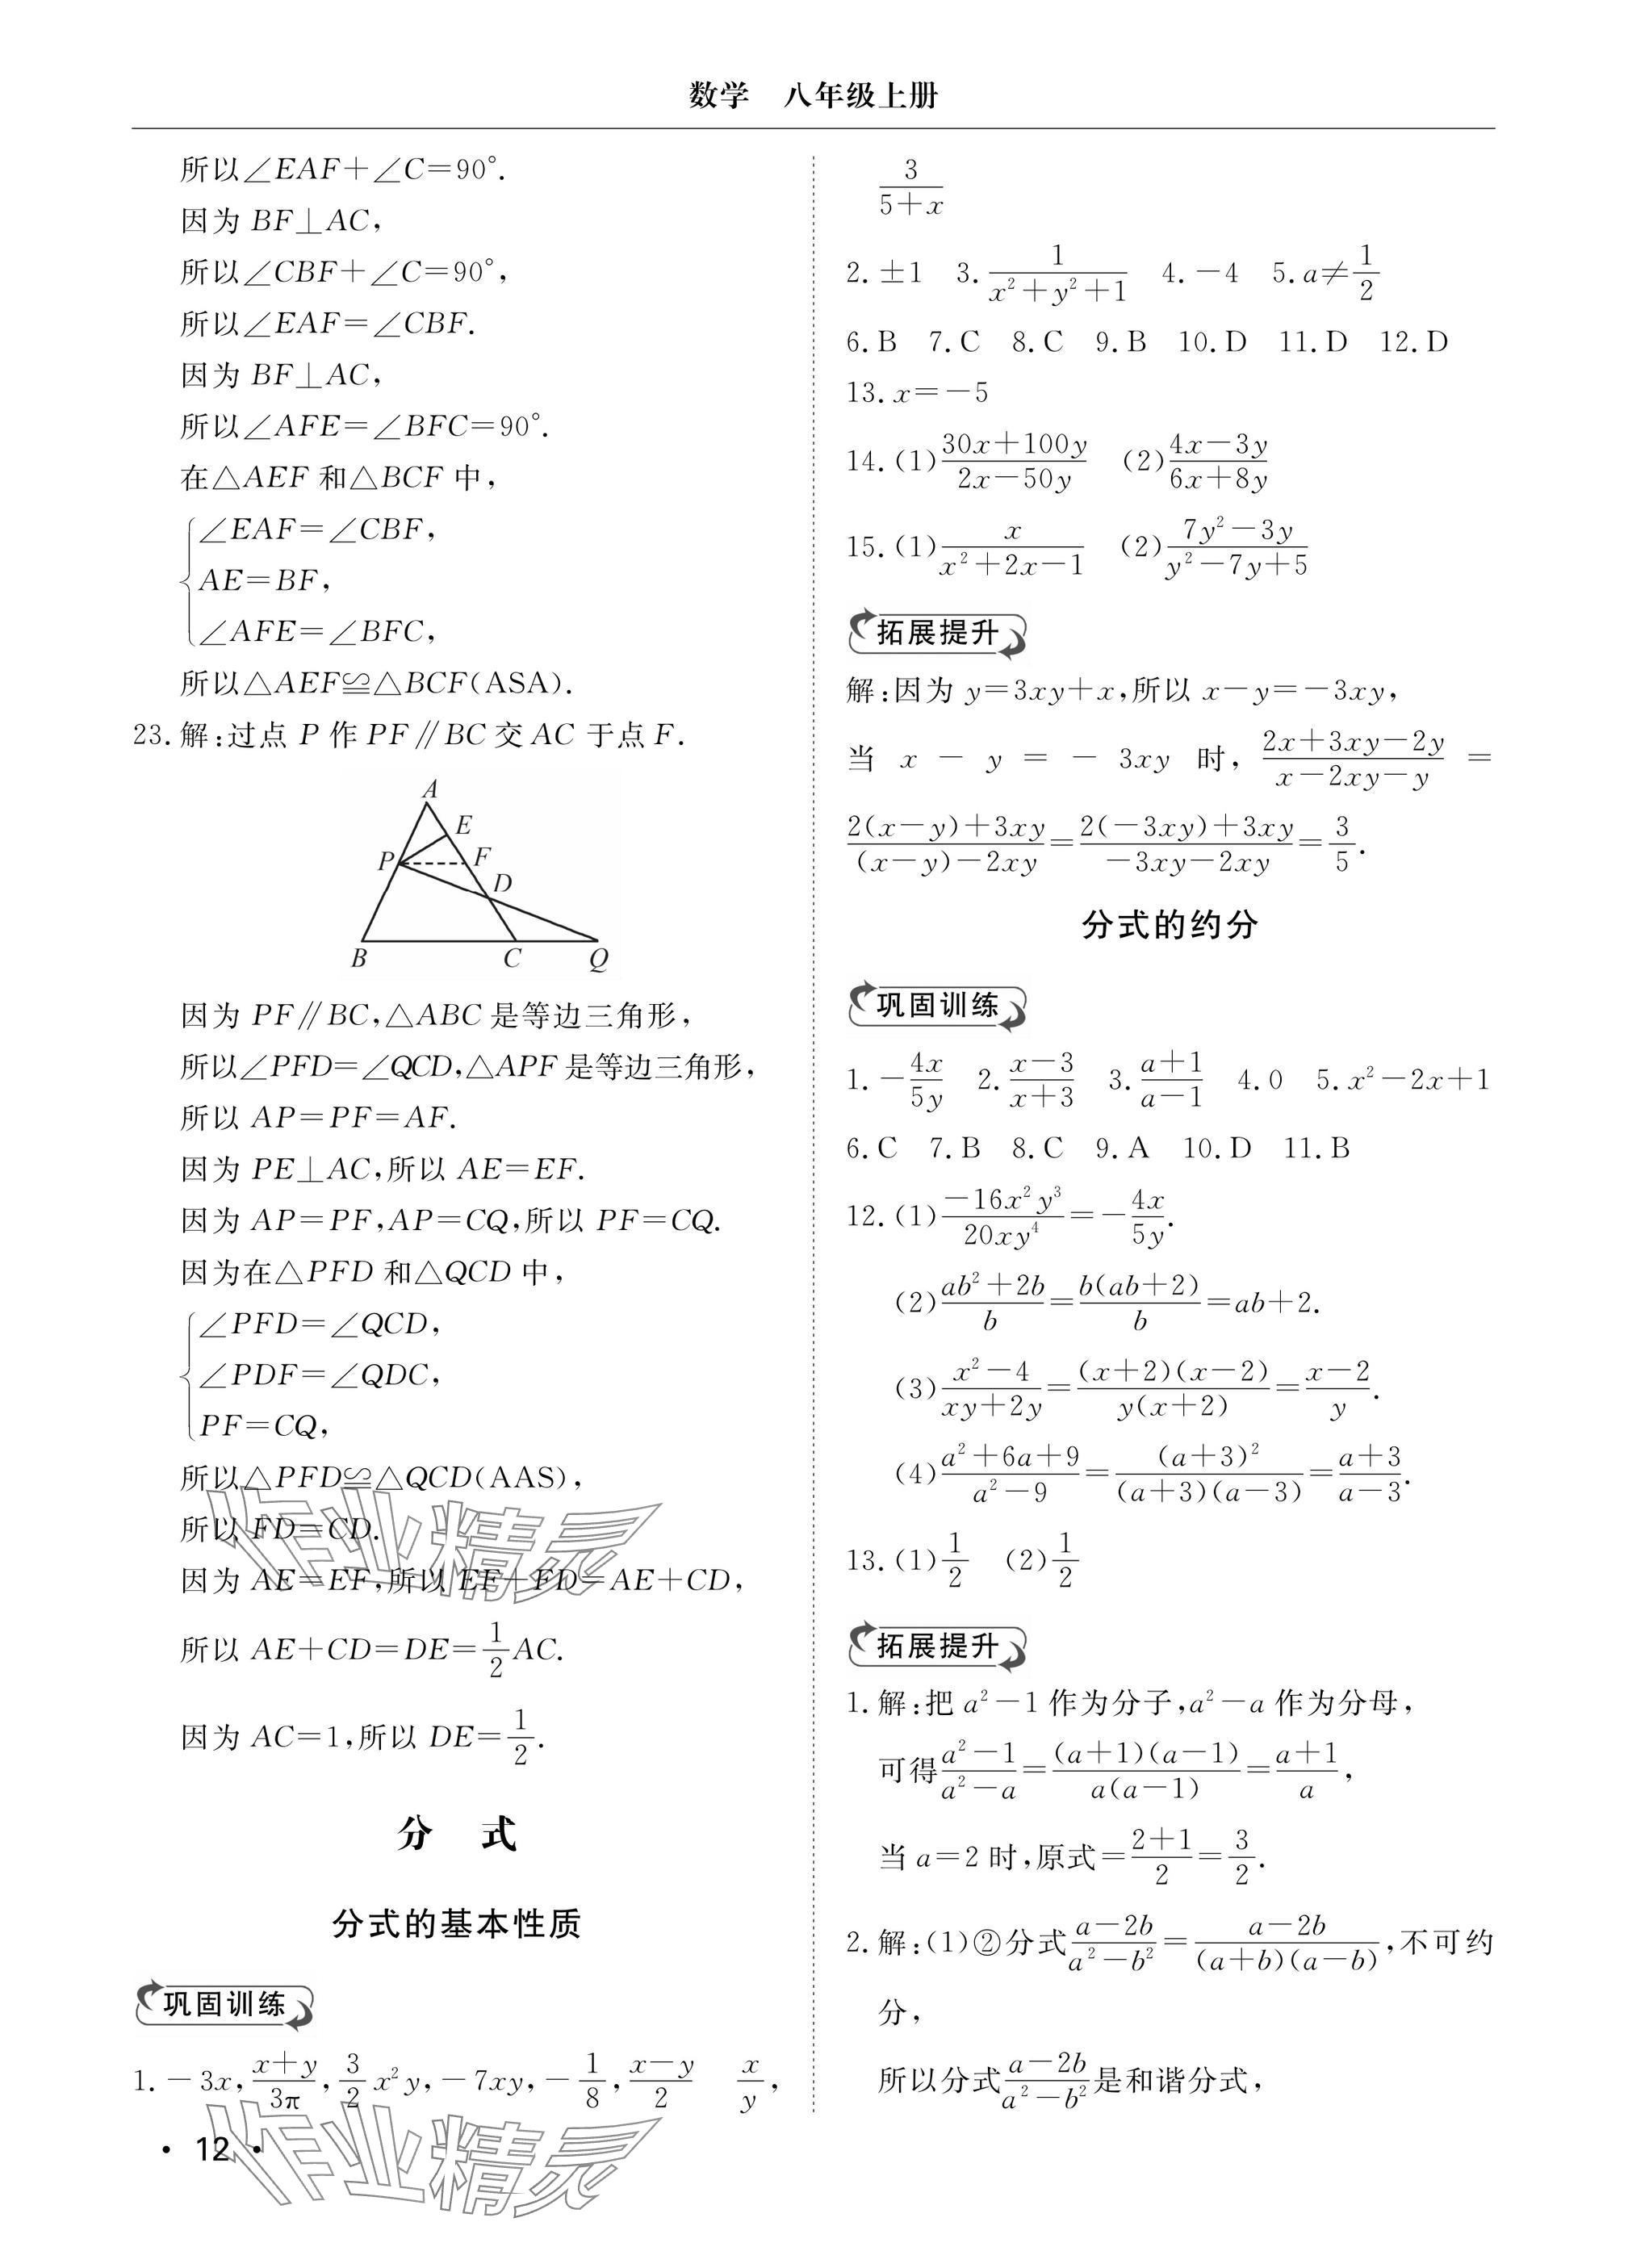 数学　八年级上册
所以∠EAF+∠C=90°.
因为 BF⊥AC,
所以∠CBF+∠C=90°,
所以∠EAF=∠CBF.
因为 BF⊥AC,
所以∠AFE=∠BFC=90°.
在△AEF 和△BCF 中,
{∠EAF=∠CBF,
AE=BF,
∠AFE=∠BFC,
所以△AEF≌△BCF(ASA).
23. 解:过点 P 作 PF∥BC 交 AC 于点 F.
A
E
P
F
D
B C Q
因为 PF∥BC,△ABC 是等边三角形,
所以∠PFD=∠QCD,△APF 是等边三角形,
所以 AP=PF=AF.
因为 PE⊥AC,所以 AE=EF.
因为 AP=PF,AP=CQ,所以 PF=CQ.
因为在△PFD 和△QCD 中,
{∠PFD=∠QCD,
∠PDF=∠QDC,
PF=CQ,
所以△PFD≌△QCD(AAS),
所以 FD=CD.
因为 AE=EF,所以 EF+FD=AE+CD,
所以 AE+CD=DE=1/2 AC.
因为 AC=1,所以 DE=1/2.
分　式
分式的基本性质
巩固训练
1. -3x, (x+y)/(3π), 3/2 x²y, -7xy, -1/8, (x-y)/2　x/y,
· 12 ·
3/(5+x)
2. ±1　3. 1/(x²+y²+1)　4. -4　5. a≠1/2
6. B　7. C　8. C　9. B　10. D　11. D　12. D
13. x=-5
14. (1) (30x+100y)/(2x-50y)　(2) (4x-3y)/(6x+8y)
15. (1) x/(x²+2x-1)　(2) (7y²-3y)/(y²-7y+5)
拓展提升
解:因为 y=3xy+x,所以 x-y=-3xy,
当 x-y=-3xy 时, (2x+3xy-2y)/(x-2xy-y) =
(2(x-y)+3xy)/((x-y)-2xy) = (2(-3xy)+3xy)/(-3xy-2xy) = 3/5.
分式的约分
巩固训练
1. -4x/5y　2. (x-3)/(x+3)　3. (a+1)/(a-1)　4. 0　5. x²-2x+1
6. C　7. B　8. C　9. A　10. D　11. B
12. (1) (-16x²y³)/(20xy⁴) = -4x/5y.
(2) (ab²+2b)/b = b(ab+2)/b = ab+2.
(3) (x²-4)/(xy+2y) = (x+2)(x-2)/(y(x+2)) = (x-2)/y.
(4) (a²+6a+9)/(a²-9) = (a+3)²/((a+3)(a-3)) = (a+3)/(a-3).
13. (1) 1/2　(2) 1/2
拓展提升
1. 解:把 a²-1 作为分子,a²-a 作为分母,
可得 (a²-1)/(a²-a) = (a+1)(a-1)/(a(a-1)) = (a+1)/a,
当 a=2 时,原式=(2+1)/2=3/2.
2. 解:(1)②分式 (a-2b)/(a²-b²) = (a-2b)/((a+b)(a-b)),不可约
分,
所以分式 (a-2b)/(a²-b²) 是和谐分式,
作业精灵
作业精灵